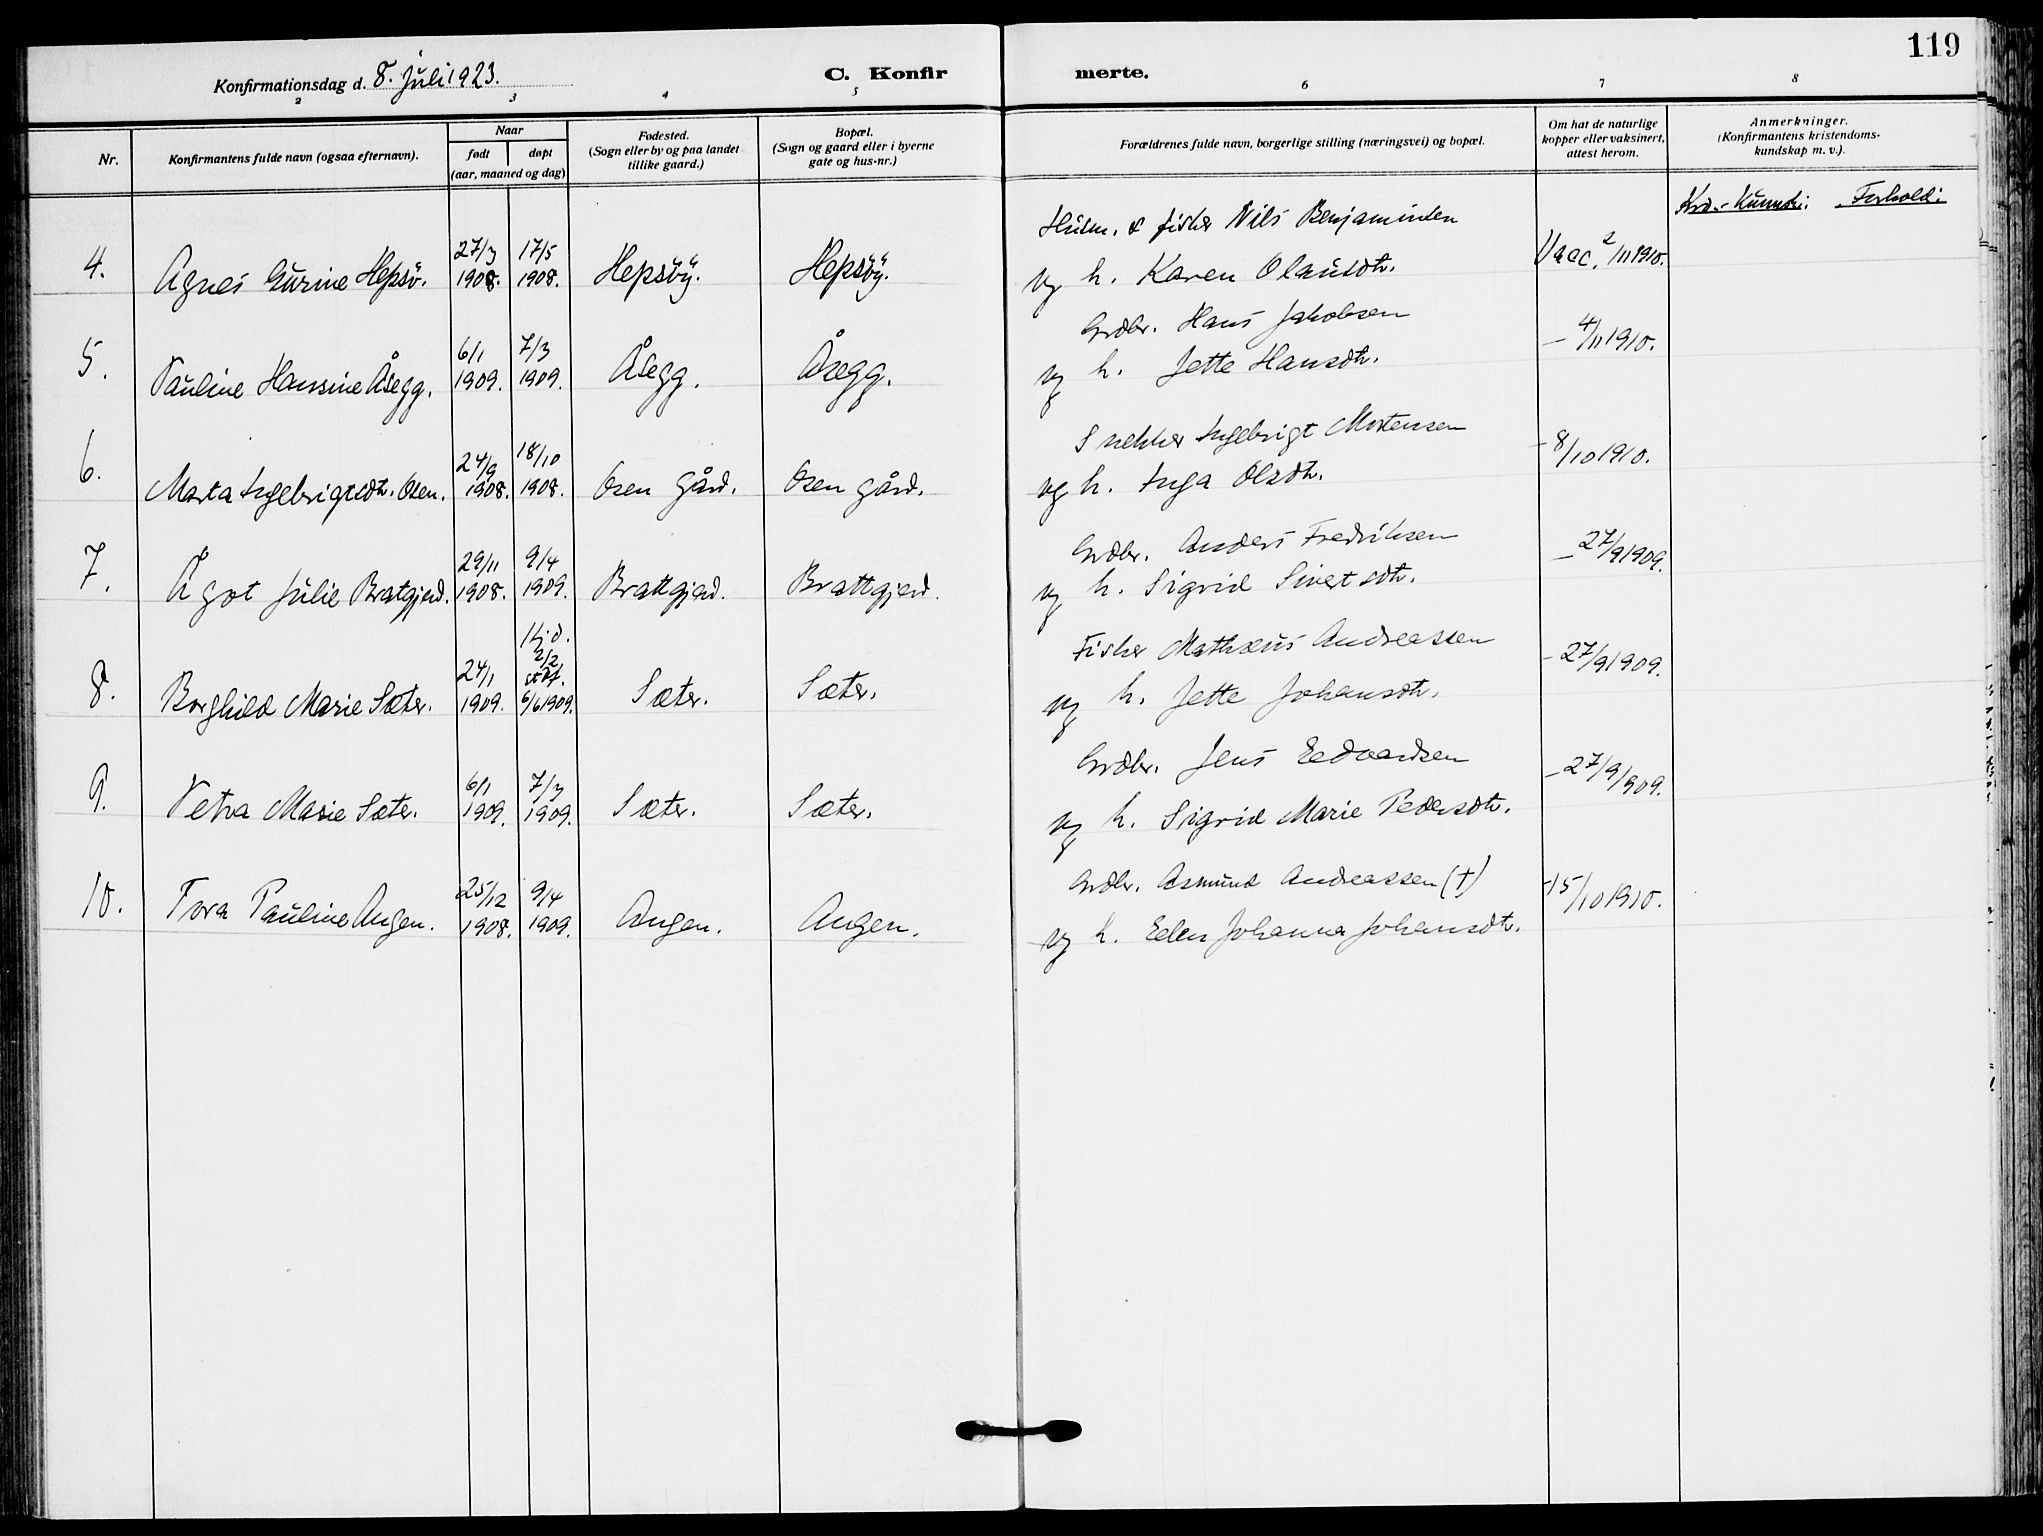 119
Konfirmationsdag d. 8. Juli 1923.
C. Konfirmerte.
2 3 4 5 6 7 8
Nr.
Konfirmantens fulde navn (ogsaa efternavn).
Naar
født
døpt
(aar, maaned og dag)
Fødested.
(Sogn eller by og paa landet
tillike gaard.)
Bopæl.
(Sogn og gaard eller i byerne
gate og hus-nr.)
Forældrenes fulde navn, borgerlige stilling (næringsvei) og bopæl.
Om hat de naturlige
kopper eller vaksinert,
attest herom.
Anmerkninger.
(Konfirmantens kristendoms-
kundskap m. v.).
Forhold:
Husm. & fisker Nils Benjaminsen
4. Agnes Gurine Hepsö. 27/3 1908. 17/5 1908. Hepsöy. Hepsöy. og h. Karen Olausdtr. Vacc. 2/11 1910.
Grdbr. Hans Jakobsen
5. Pauline Hansine Åsegg. 6/1 1909. 7/3 1909. Åsegg. Åsegg. og h. Jette Hansdtr. – 4/11 1910.
Snekker Ingebrigt Mortensen
6. Marta Ingebrigtsdtr. Osen. 24/9 1908. 18/10 1908. Osen gård. Osen gård. og h. Inga Olsdtr. – 8/10 1910.
Grdbr. Anders Fredriksen
7. Ågot Julie Bratgjerd. 29/11 1908. 9/4 1909. Brattgjerd. Brattgjerd. og h. Sigrid Sivertsdtr. – 27/9 1909.
Fisker Mathæus Andreassen
8. Borghild Marie Sæter. 24/1 1909. Hj.d. 2/2 st.f. 6/6 1909. Sæter. Sæter. og h. Jette Johansdtr. – 27/9 1909.
Grdbr. Jens Edvardsen
9. Petra Marie Sæter. 6/1 1909. 7/3 1909. Sæter. Sæter. og h. Sigrid Marie Pedersdtr. – 27/9 1909.
Grdbr. Asmund Andreassen (†)
10. Tora Pauline Angen. 25/12 1908. 9/4 1909. Angen. Angen. og h. Elen Johanna Johansdtr. – 15/10 1910.